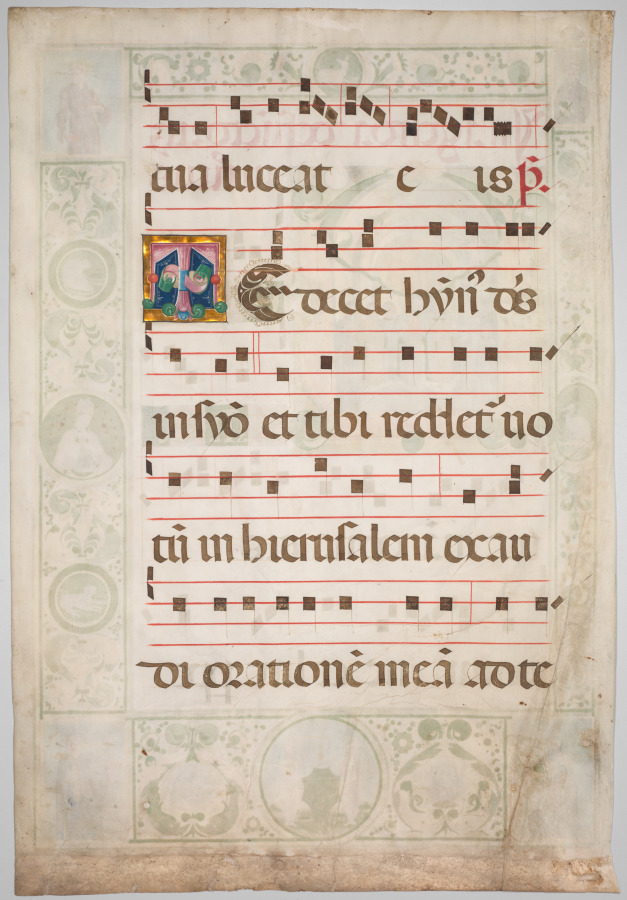 tua luceat e is p̃.
TE decet hỹn⁹ ds̃
in syõ et tibi reddet᷑ uo
tũ in hierusalem exau
di orationẽ meã ad te